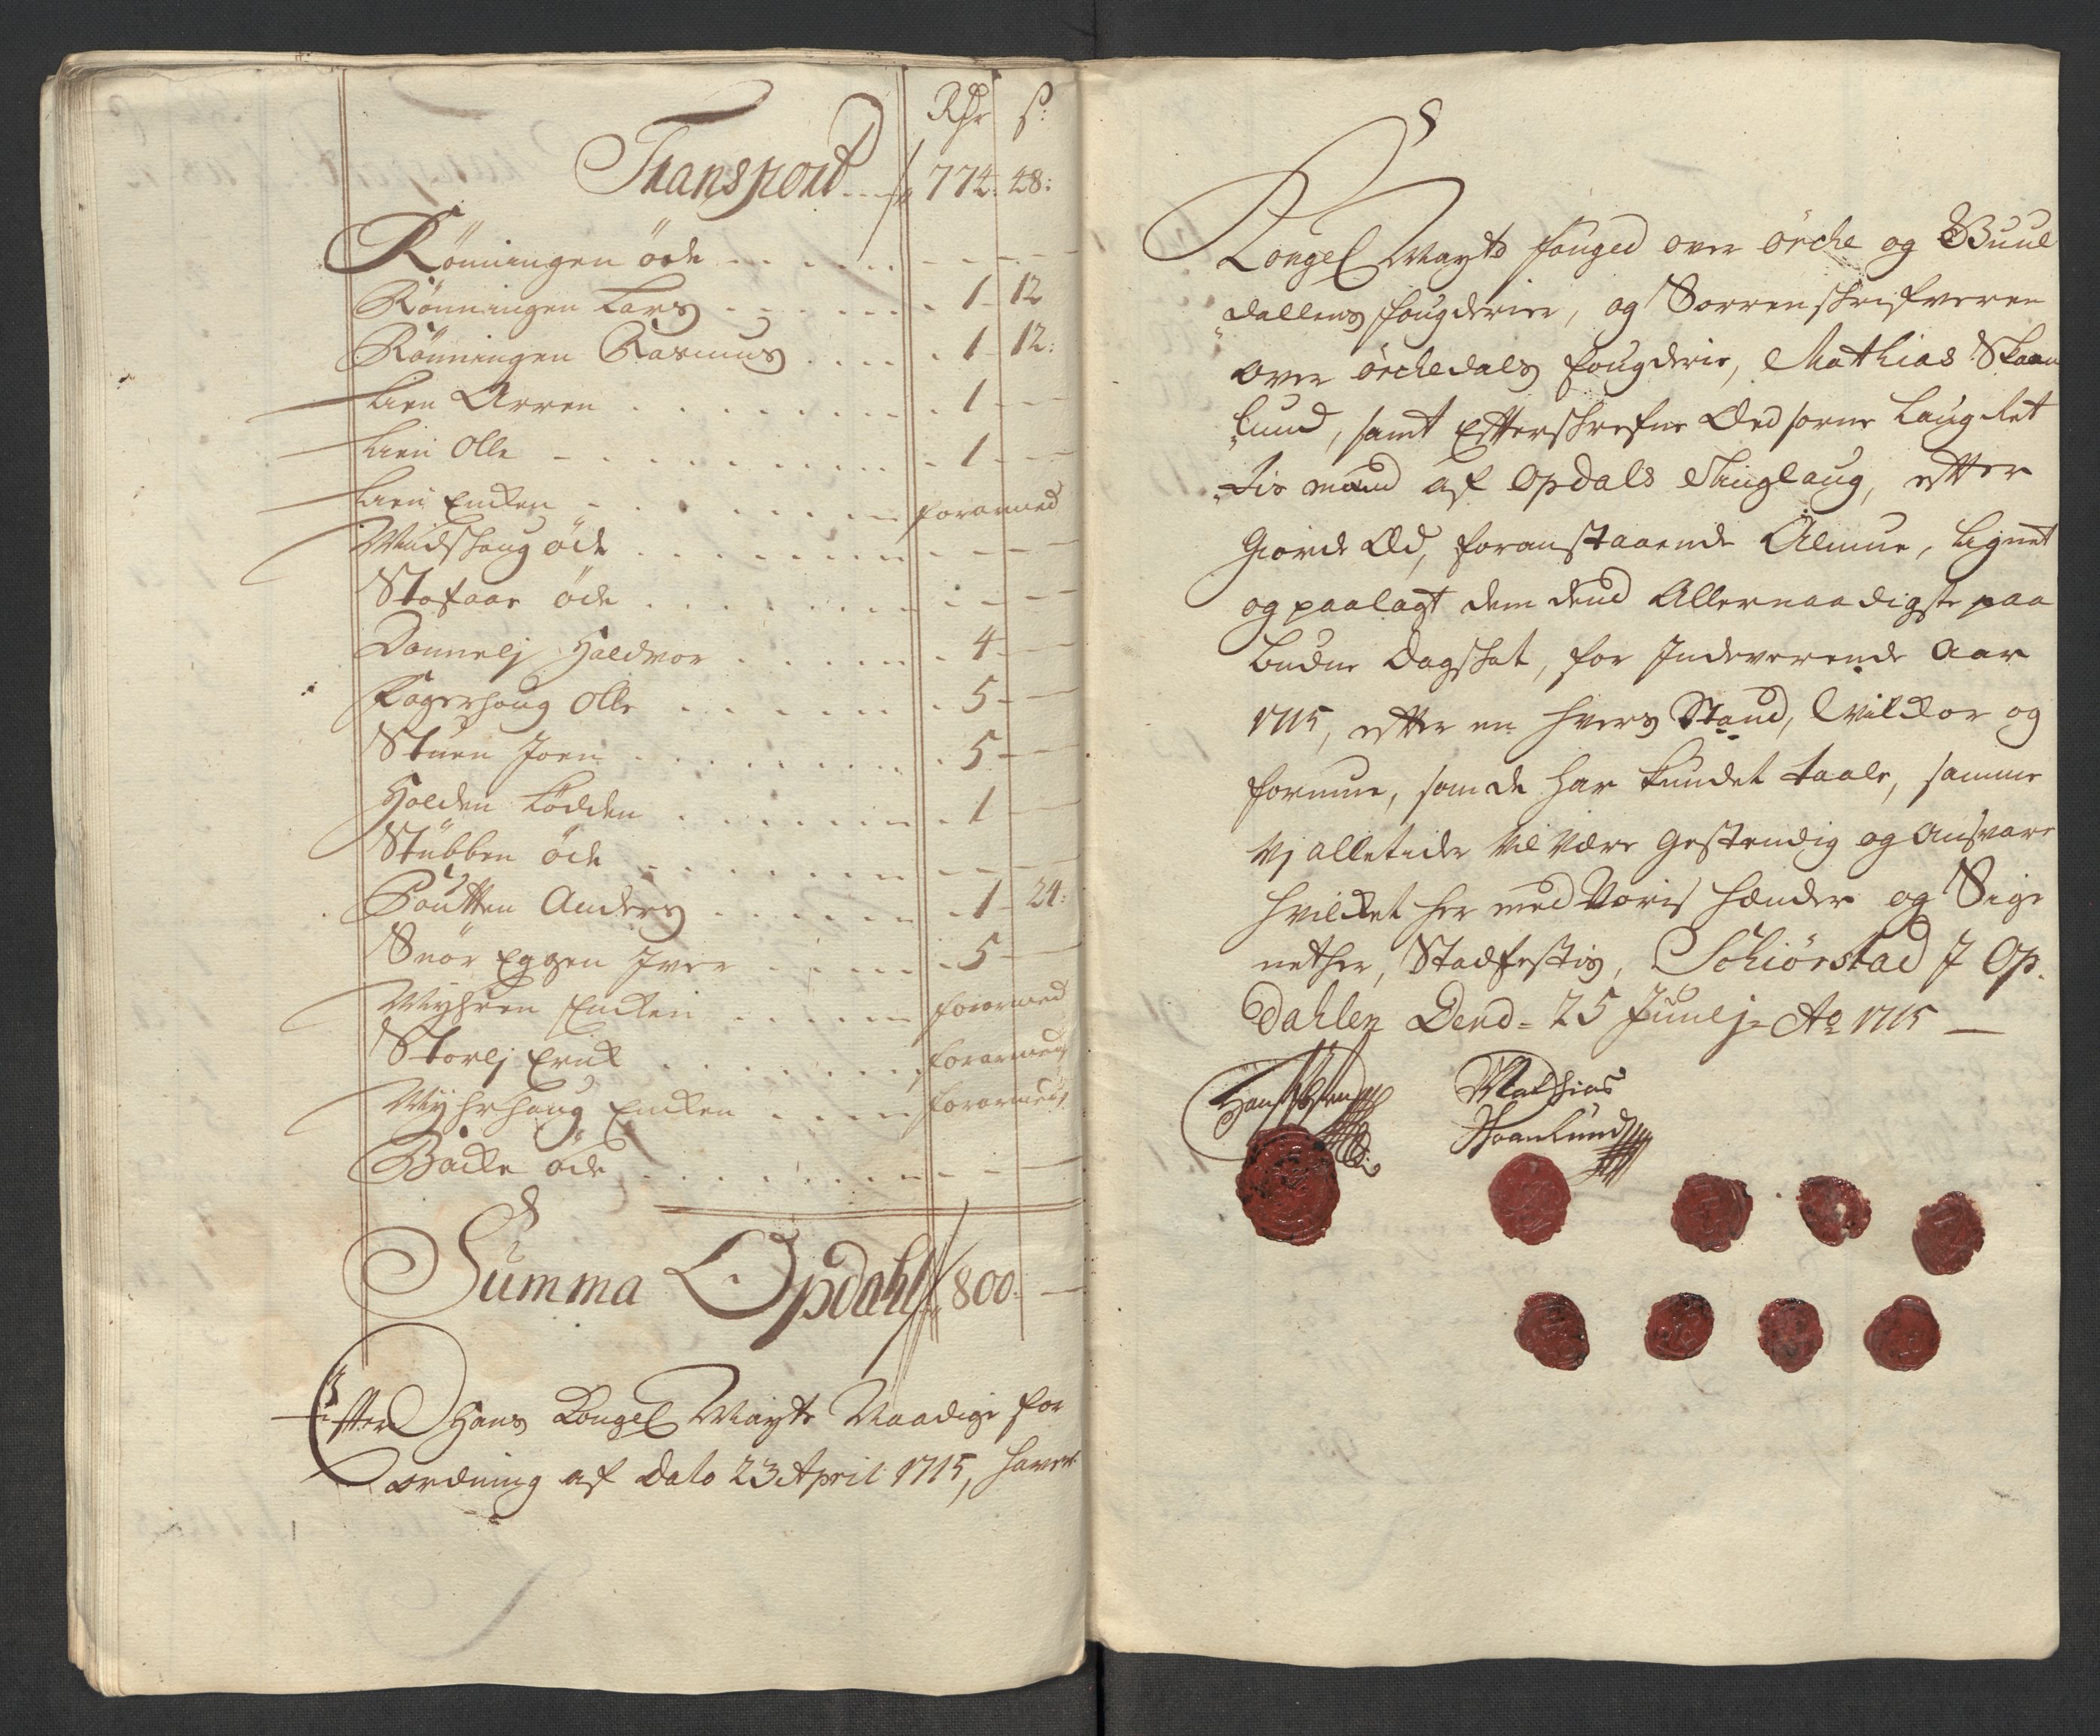 Rdr s:
Transport 774: 48:
Rönningen öde
Rönningen Lars 1 12
Rönningen Rasmus 1 12:
Lien Arren 1
Lien Olle 1
Lien Encken forarmed
Mudshoug öde
Stofaar öde
Donnelj Haldvor 4
Fagerhoug Olle 5
Stuen Joen 5
Holden Lödden 1
Stübben öde
Poutten Anders 1 24:
Snör Eggen Iver 5
Myhren Encken forarmed
Storlj Erick forarmed
Myhrhoug Encken forarmed
Backe öde
Summa Opdahl 800:
Efter Hans Kongel Mayts Naadige for
ordning af dato 23 April 1715, haver
Kongel Mayts fouged over örche og Buul
dallens fougderier, og Sorrenskrifveren
over örchedals fougderie, Mathias Skaan
lund, samt Efterskrefne Eedsorne Laugret
tis mænd af Opdals Tinglaug, efter
Giorde Eed, foranstaaende Almue, lignet
og paalagt dem dend Allernaadigste paa
budne Dagskat, for Indeverende Aar
1715, efter en hvers Stand, Vilckor og
formue, som de har kundet taale, samme
vj alletider vil være Gestendig og Ansvare
hvilcket her med Voris hænder og Sig
nether, Stadfestis, Schiörstad I Op.
Dahlen Dend 25 Junij Ao 1715
Mathias
Skaanlund